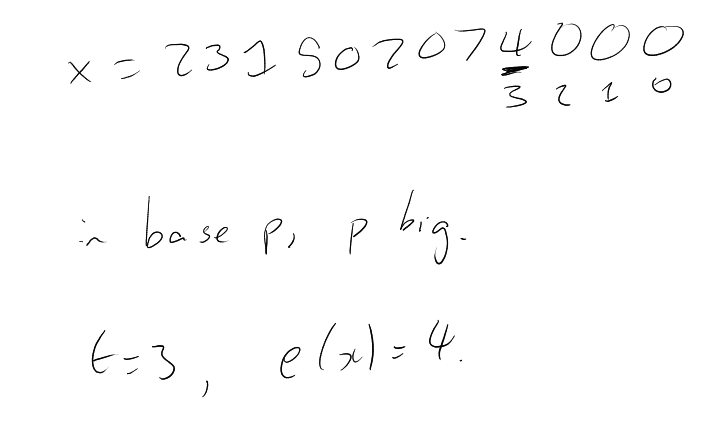 x = 231502074000
3 2 1 0
in base p, p big.
t=3, e(x)=4.